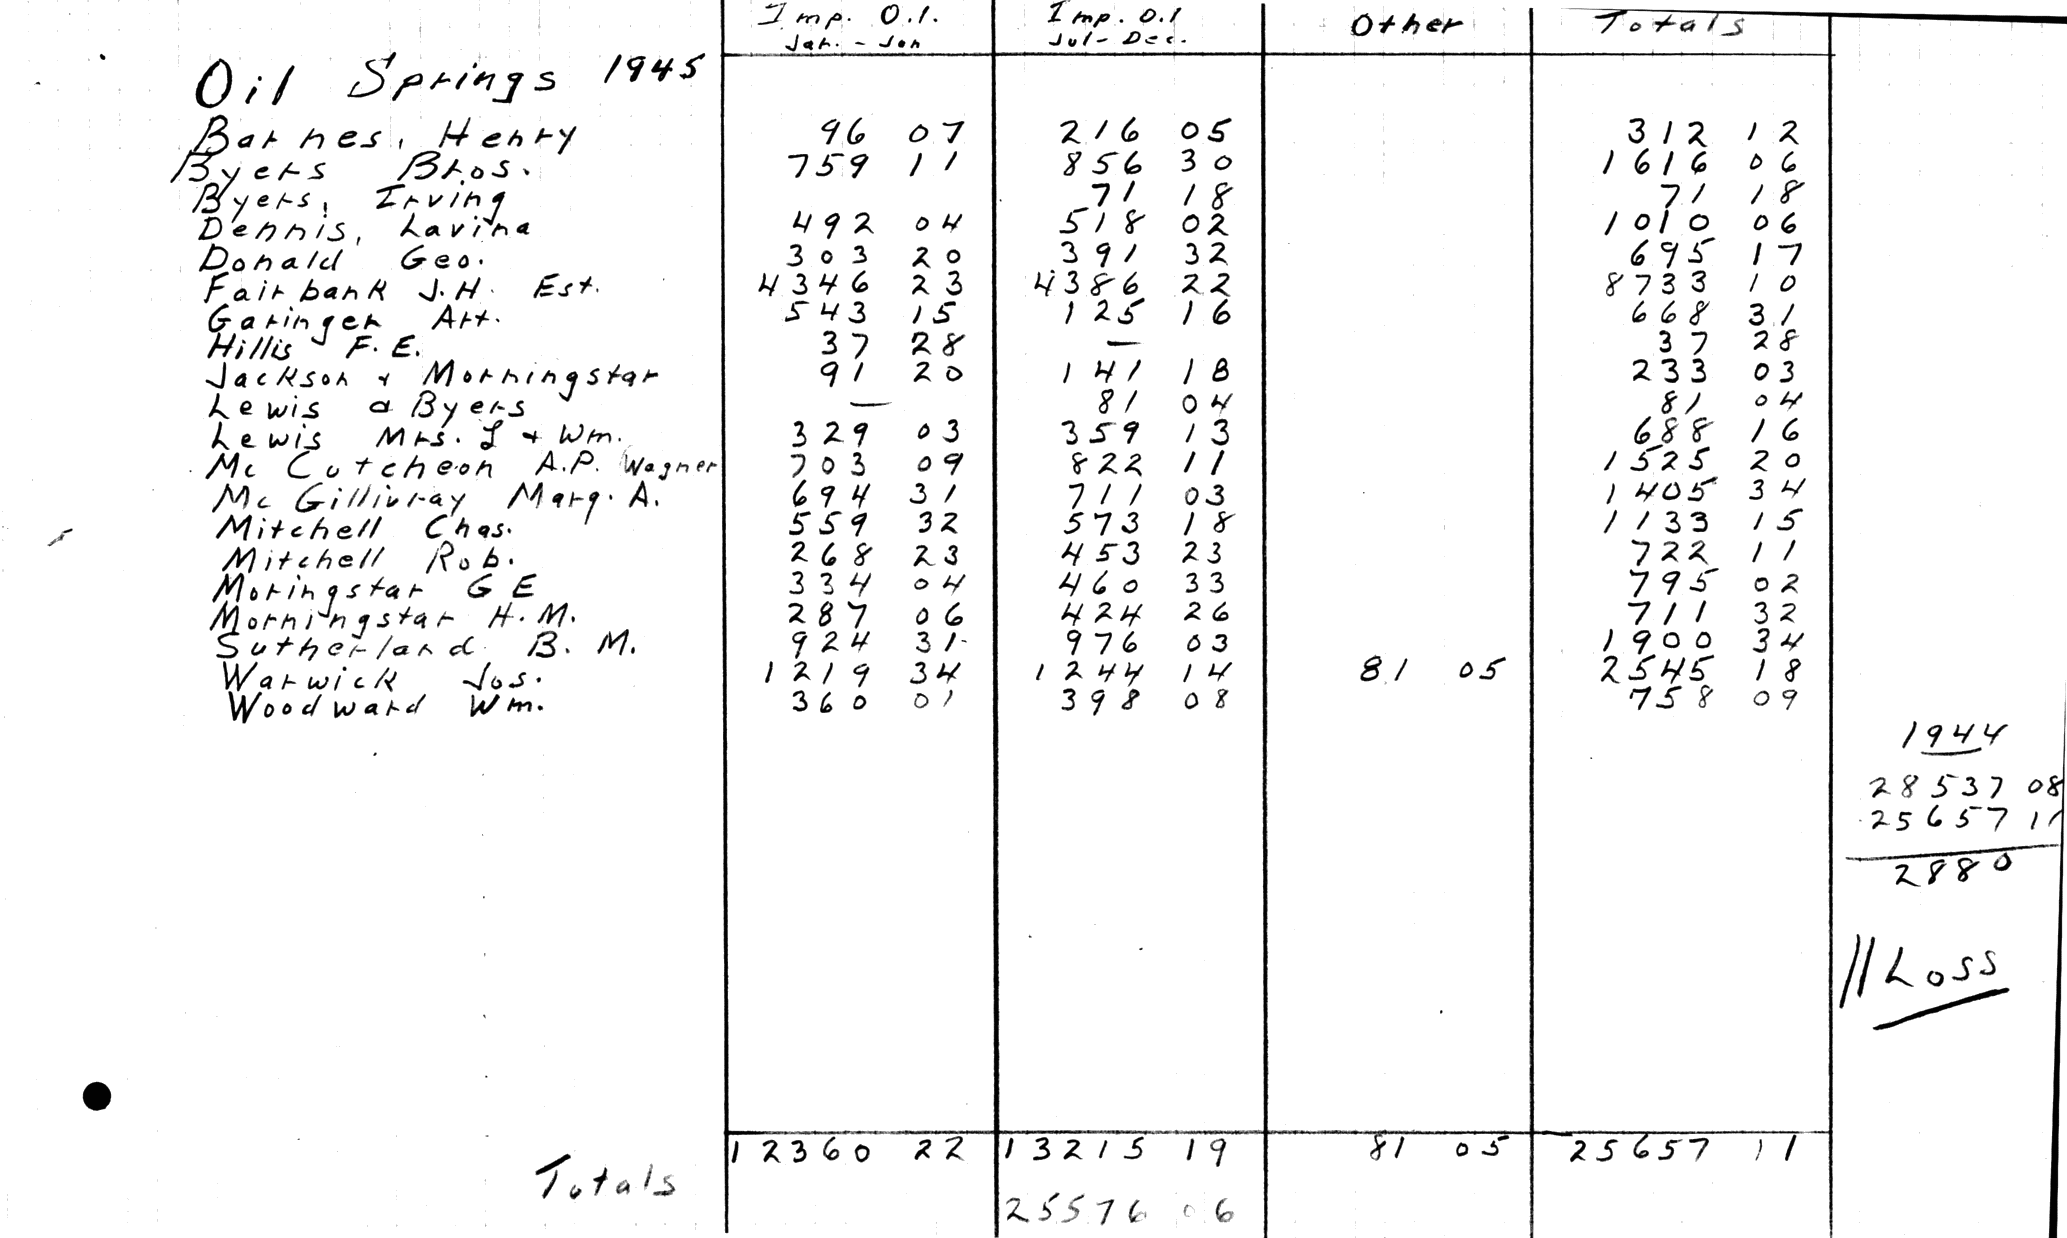 Imp. Oil. Imp. Oil Other Totals
Jan. - Jun Jul - Dec.
Oil Springs 1945
Barnes, Henry 96 07 216 05 312 12
Byers Bros. 759 11 856 30 1616 06
Byers, Irving 71 18 71 18
Dennis, Lavina 492 04 518 02 1010 06
Donald Geo. 303 20 391 32 695 17
Fairbank J.H. Est. 4346 23 4386 22 8733 10
Garinger Art. 543 15 125 16 668 31
Hillis F.E. 37 28 — 37 28
Jackson & Morningstar 91 20 141 18 233 03
Lewis & Byers — 81 04 81 04
Lewis Mrs. L & Wm. 329 03 359 13 688 16
Mc Cutcheon A.P. Wagner 703 09 822 11 1525 20
Mc Gillivray Marg. A. 694 31 711 03 1405 34
Mitchell Chas. 559 32 573 18 1133 15
Mitchell Rob. 268 23 453 23 722 11
Moringstar G E 334 04 460 33 795 02
Morningstar H.M. 287 06 424 26 711 32
Sutherland B. M. 924 31 976 03 1900 34
Warwick Jos. 1219 34 1244 14 81 05 2545 18
Woodward Wm. 360 01 398 08 758 09
1944
28537 08
25657 11
2880
// Loss
Totals 12360 22 13215 19 81 05 25657 11
25576 06